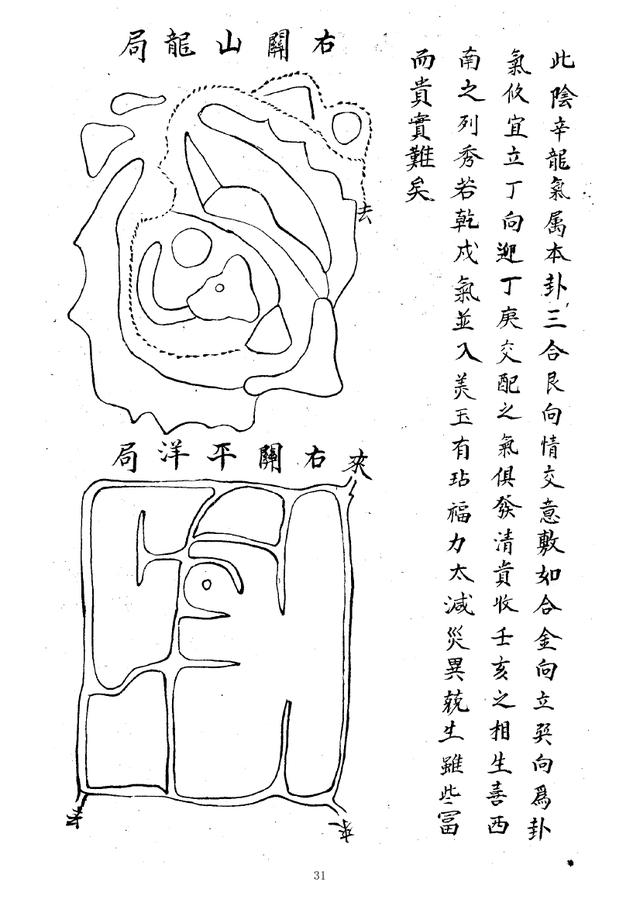 此陰辛龍氣属本卦三合艮向情交意敷如合金向立巽向為卦
氣攸宜立丁向迎丁庚交配之氣俱發清貴收壬亥之相生喜西
南之列秀若乾戍氣並入美玉有玷福力太減災異生雖些富
而貴實難矣
右關山龍局
去
右關平洋局
來
來
去
31